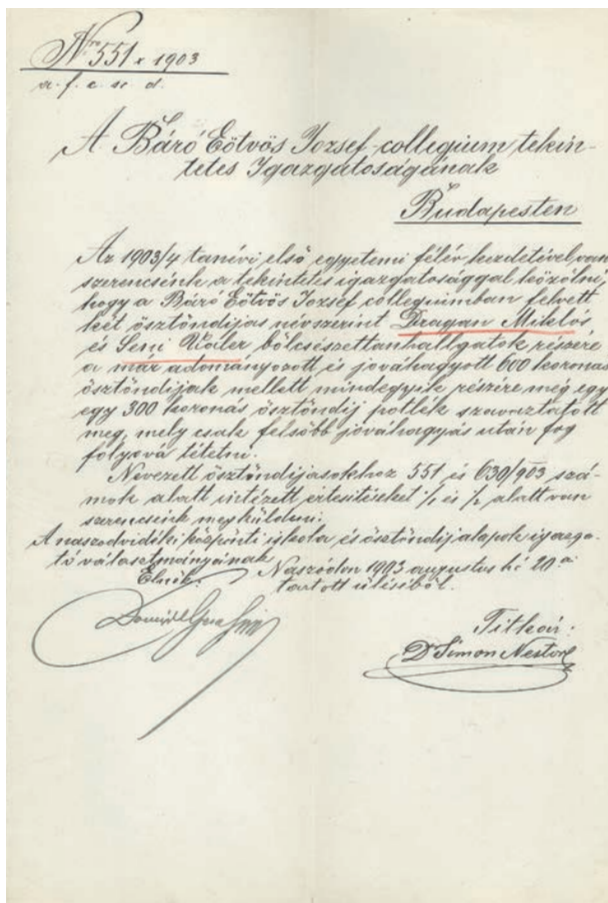 Nro 551 x 1903
a. f. e. sc. d.
A Báró Eötvös József-collegium tekin-
tetes Igazgatóságának
Budapesten
Az 1903/4 tanévi első egyetemi félév kezdetével van
szerencsénk a tekintetes igazgatósággal közölni,
hogy a Báró Eötvös József collegiumban felvett
két ösztöndíjas névszerint Dragan Miklós
és Seni Valer bölcsészettanhallgatók részére
a már adományozott és jóváhagyott 600 koronás
ösztöndíjak mellett mindegyik részére még egy
egy 300 koronás ösztöndíj pótlék szavaztatott
meg, mely csak felsőbb jóváhagyás után fog
folyóvá tétetni.
Nevezett ösztöndíjasokhoz 551 és 630/903 szá-
mok alatt intézett értesítéseket 1/1 és 1/2 alatt van
szerencsénk megküldeni.
A naszódvidéki központi iskola és ösztöndíjalapok igazga-
tó választmányának
Naszódon 1903 augusztus hó 20 án
Elnök:
tartott üléséből.
Titkár:
Dr Simon Nestor